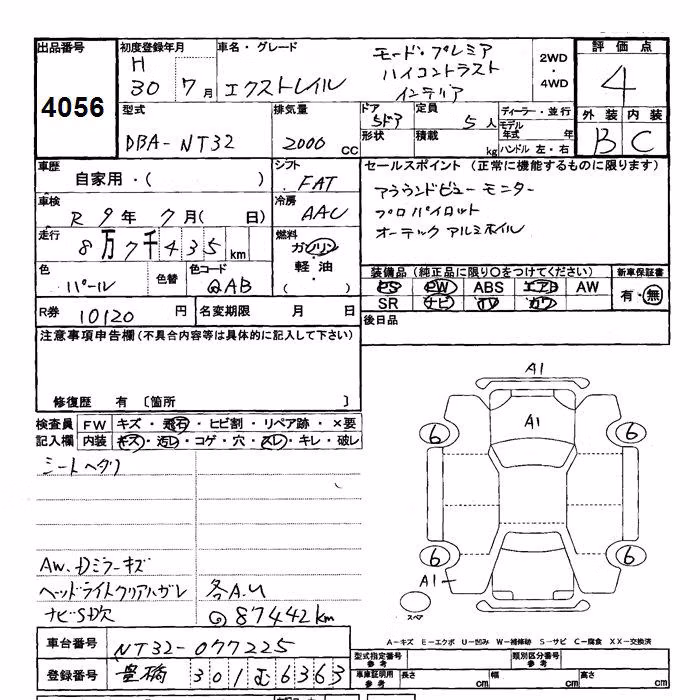 出品番号 初度登録年月 車名・グレード 評価点
4056 H 30 7月 エクストレイル モード・プレミア
ハイコントラスト
インテリア
2WD・4WD
4
外装 内装
B C
型式 排気量 ドア 定員 ディーラー・並行
DBA-NT32 2000 CC 5ドア 5人
モデル年式 年
形状 積載 kg ハンドル 左・右
車歴 シフト セールスポイント(正常に機能するものに限ります)
自家用・( ) FAT
アラウンドビューモニター
プロパイロット
オーテックアルミホイル
車検 冷房
R 9年 7月( 日) AAC
走行 燃料
8万7千435km ガソリン・軽油・( )
色 色替 色コード
パール QAB
装備品(純正品に限り○をつけてください) 新車保証書
PS PW ABS エアB AW 有・無
SR ナビ TV カワ
R券 10120円 名変期限 月 日
後日品
注意事項申告欄(不具合内容等は具体的に記入して下さい)
修復歴 有 〔箇所 〕
検査員 FW キズ・飛石・ヒビ割・リペア跡・×要
記入欄 内装 キズ・汚レ・コゲ・穴・スレ・キレ・破レ
シートヘタリ
AW.Dミラーキズ
ヘッドライトクリアハガレ 各A.U
ナビSD欠 ◎87442km
A1
A1
6 6
6 6
A1
スペア
A-キズ E-エクボ U-凹み W-補修跡 S-サビ C-腐食 XX-交換済
車台番号 NT32-077225
登録番号 豊橋 301 む 6363
型式指定番号 参考 類別区分番号 参考
車庫証明用 参考 長さ cm 幅 cm 高さ cm